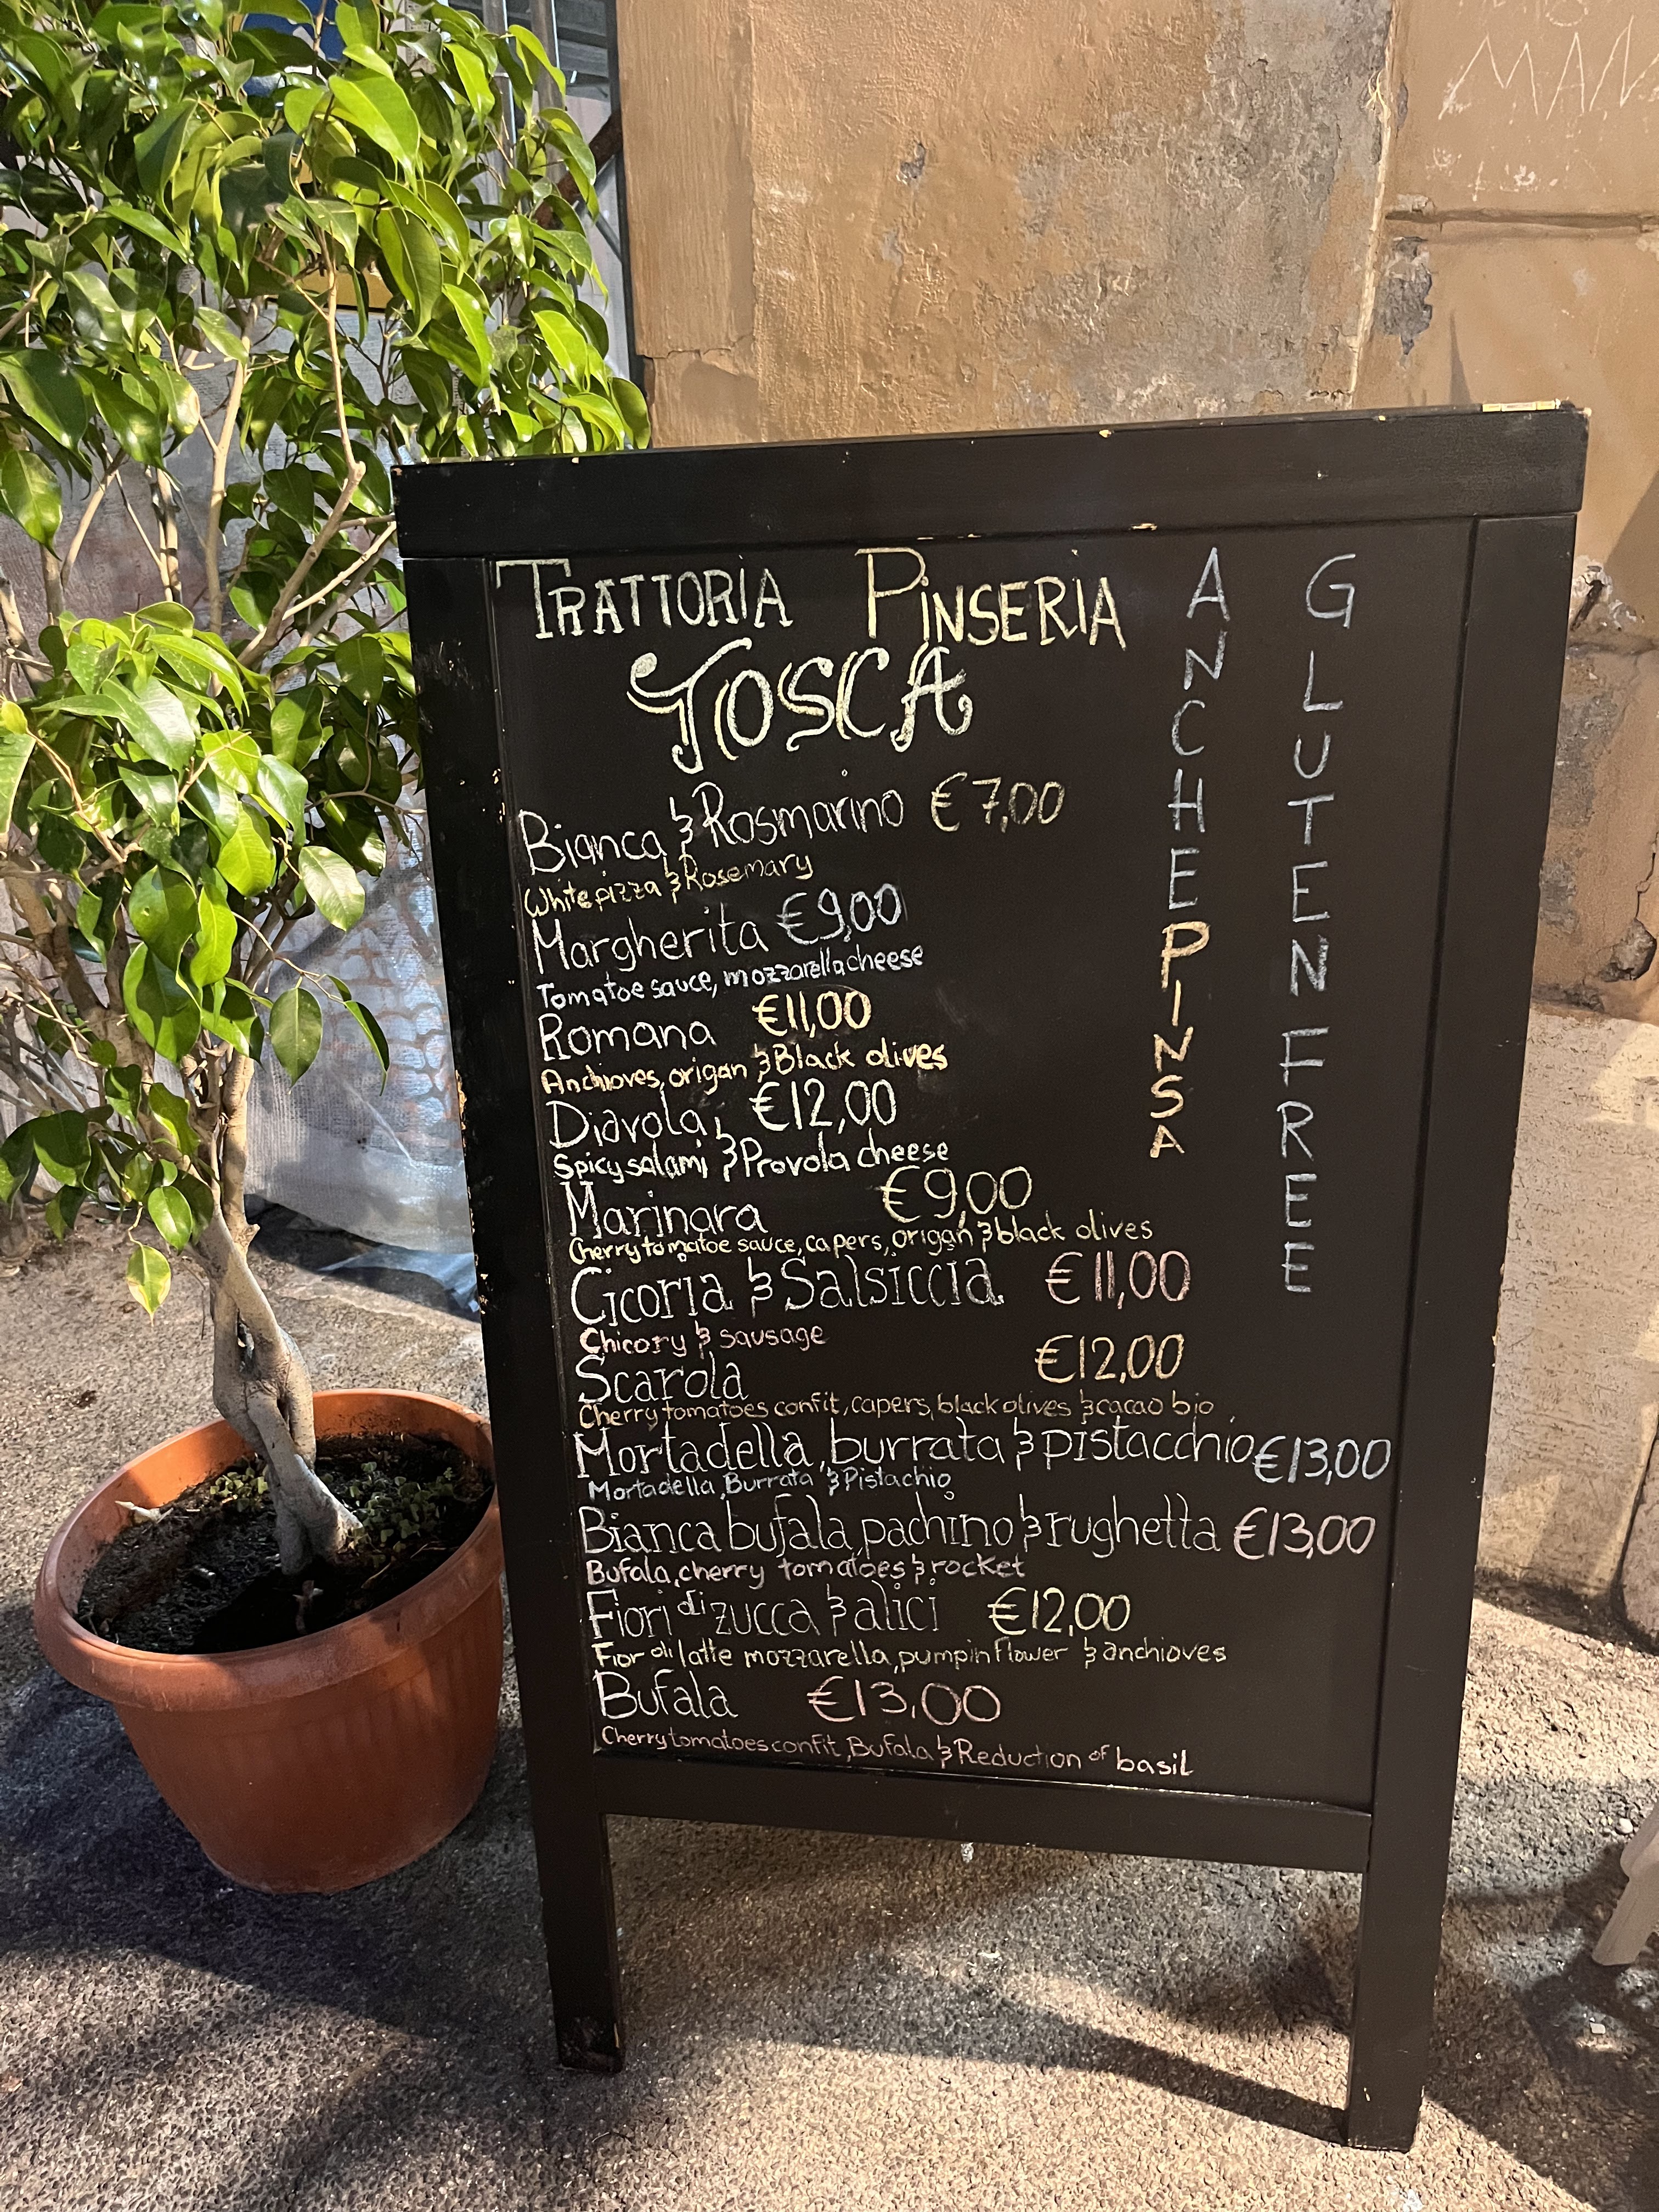 TRATTORIA PINSERIA
TOSCA
Bianca & Rosmarino €7,00
White pizza & Rosemary
Margherita €9,00
Tomatoe sauce, mozzarella cheese
Romana €11,00
Anchioves, origan & Black olives
Diavola €12,00
Spicy salami & Provola cheese
Marinara €9,00
Cherry tomatoe sauce, capers, origan & black olives
Cicoria & Salsiccia €11,00
Chicory & sausage
Scarola €12,00
Cherry tomatoes confit, capers, black olives & cacao bio
Mortadella, burrata & pistacchio €13,00
Mortadella, Burrata & Pistachio
Bianca bufala, pachino & rughetta €13,00
Bufala, cherry tomatoes & rocket
Fiori di zucca & alici €12,00
Fior di latte mozzarella, pumpin flower & anchioves
Bufala €13,00
Cherry tomatoes confit, Bufala & Reduction of basil
ANCHE PINSA
GLUTEN FREE